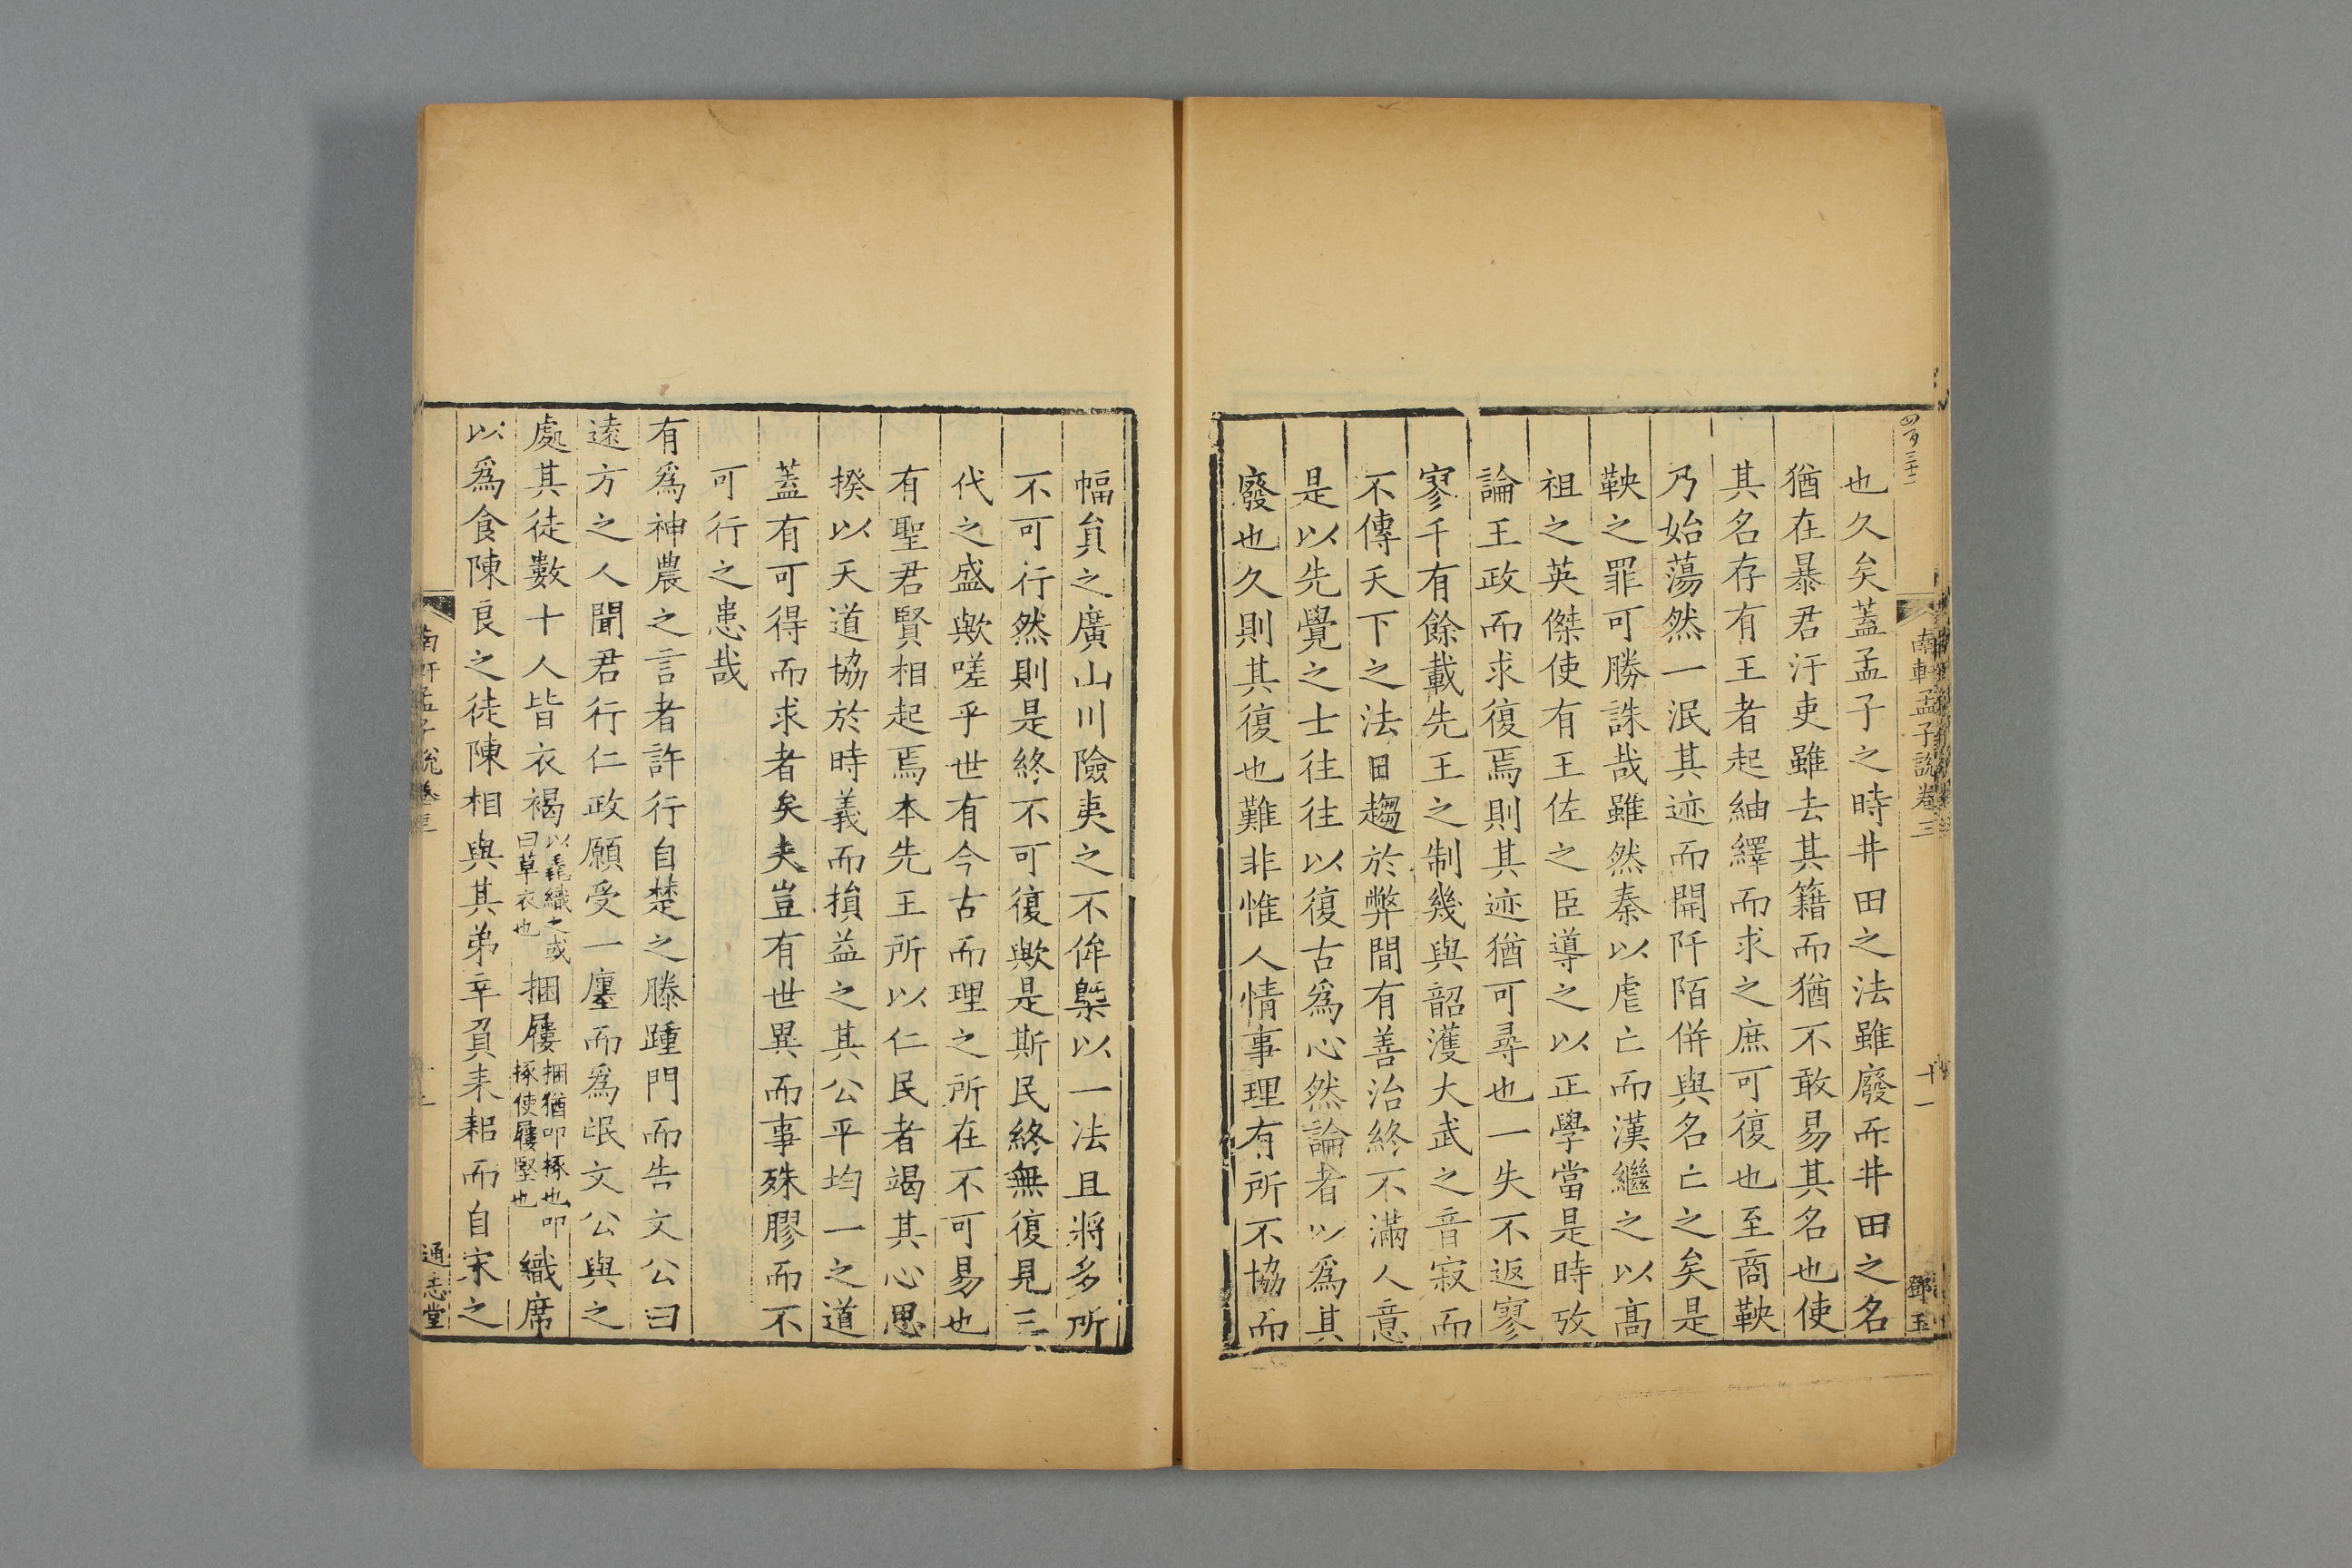 四百三十二
南軒孟子說卷三
十一
鄧玉
也久矣蓋孟子之時井田之法雖廢而井田之名
猶在暴君汙吏雖去其籍而猶不敢易其名也使
其名存有王者起紬繹而求之庶可復也至商鞅
乃始蕩然一泯其迹而開阡陌併與名亡之矣是
鞅之罪可勝誅哉雖然秦以虐亡而漢繼之以高
祖之英傑使有王佐之臣導之以正學當是時攷
論王政而求復焉則其迹猶可尋也一失不返寥
寥千有餘載先王之制幾與韶濩大武之音寂而
不傳天下之法日趨於弊間有善治終不滿人意
是以先覺之士往往以復古為心然論者以為其
廢也久則其復也難非惟人情事理有所不協而
幅貟之廣山川險夷之不侔槩以一法且將多所
不可行然則是終不可復歟是斯民終無復見三
代之盛歟嗟乎世有今古而理之所在不可易也
有聖君賢相起焉本先王所以仁民者竭其心思
揆以天道協於時義而損益之其公平均一之道
蓋有可得而求者矣夫豈有世異而事殊膠而不
可行之患哉
有為神農之言者許行自楚之滕踵門而告文公曰
遠方之人聞君行仁政願受一廛而為氓文公與之
處其徒數十人皆衣褐以毳織之或曰草衣也捆屨捆猶叩㧻也叩㧻使屨堅也織席
以為食陳良之徒陳相與其弟辛負耒耜而自宋之
南軒孟子說卷三
通志堂